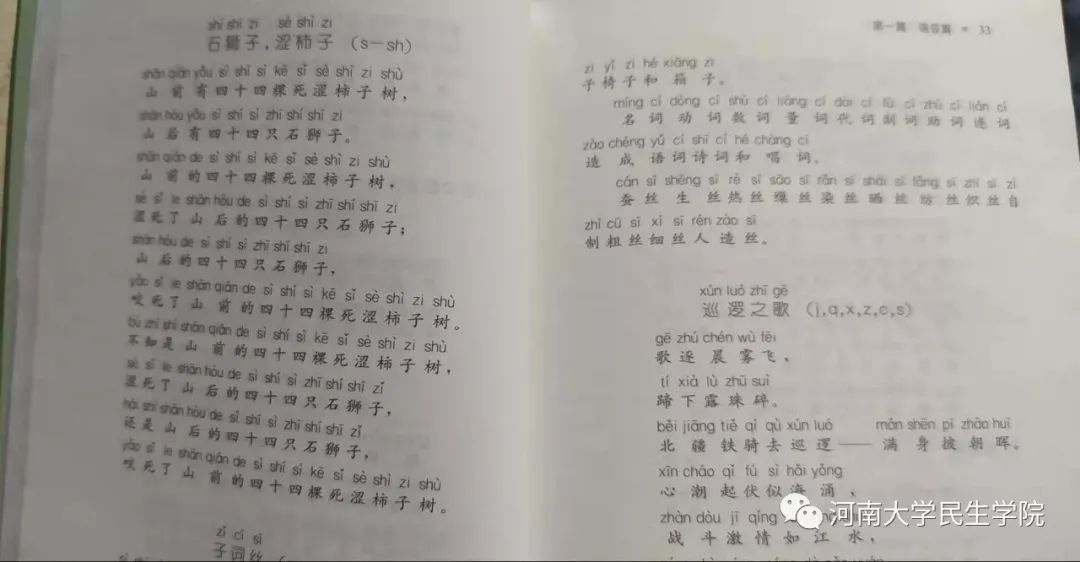 shí shī zi sè shì zi
石狮子，涩柿子（s—sh）
shān qián yǒu sì shí sì kē sǐ sè shì zi shù
山前有四十四棵死涩柿子树，
shān hòu yǒu sì shí sì zhī shí shī zi
山后有四十四只石狮子。
shān qián de sì shí sì kē sǐ sè shì zi shù
山前的四十四棵死涩柿子树，
sè sǐ le shān hòu de sì shí sì zhī shí shī zi
涩死了山后的四十四只石狮子；
shān hòu de sì shí sì zhī shí shī zi
山后的四十四只石狮子，
yǎo sǐ le shān qián de sì shí sì kē sǐ sè shì zi shù
咬死了山前的四十四棵死涩柿子树。
bù zhī shì shān qián de sì shí sì kē sǐ sè shì zi shù
不知是山前的四十四棵死涩柿子树，
sè sǐ le shān hòu de sì shí sì zhī shí shī zi
涩死了山后的四十四只石狮子，
hái shì shān hòu de sì shí sì zhī shí shī zi
还是山后的四十四只石狮子，
yǎo sǐ le shān qián de sì shí sì kē sǐ sè shì zi shù
咬死了山前的四十四棵死涩柿子树。
zǐ cí sī
子词丝
第一篇 语音篇 33
zi yǐ zi hé xiāng zi
子椅子和箱子。
míng cí dòng cí shù cí liàng cí dài cí fù cí zhù cí lián cí
名词动词数词量词代词副词助词连词
zào chéng yǔ cí shī cí hé chàng cí
造成语词诗词和唱词。
cán sī shēng sī rè sī sāo sī rǎn sī shài sī fǎng sī zhī sī zì
蚕丝生丝热丝缫丝染丝晒丝纺丝织丝自
zhì cū sī xì sī rén zào sī
制粗丝细丝人造丝。
xún luó zhī gē
巡逻之歌（j,q,x,z,c,s）
gē zhú chén wù fēi
歌逐晨雾飞，
tí xià lù zhū suì
蹄下露珠碎。
běi jiāng tiě qí qù xún luó mǎn shēn pī zhāo huī
北疆铁骑去巡逻——满身披朝晖。
xīn cháo qǐ fú sì hǎi yǒng
心潮起伏似海涌，
zhàn dòu jī qíng
战斗激情如江水，
河南大学民生学院